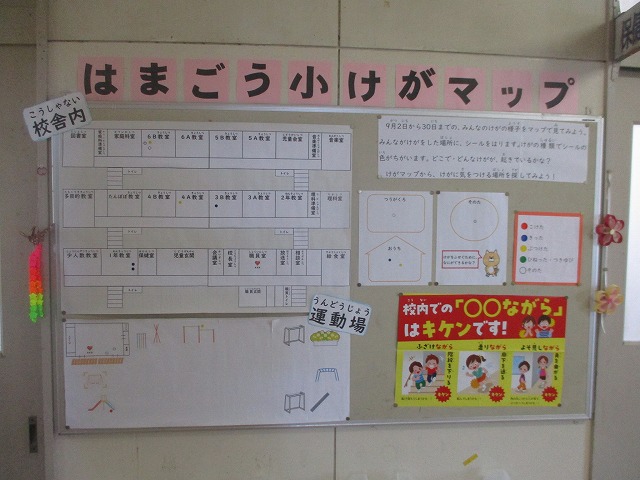 はまごう小けがマップ
こうしゃない
校舎内
9月2日から30日までの、みんなのけがの様子をマップで見てみよう。
みんながけがをした場所に、シールをはります。けがの種類でシールの
色がちがいます。どこで・どんなけがが、起きているかな?
けがマップから、けがに気をつける場所を探してみよう!
図書室 音楽準備室 家庭科室 6B教室 6A教室 5B教室 5A教室 児童会室 音楽室
トイレ
多目的教室 たんぽぽ教室 4B教室 4A教室 3B教室 3A教室 2年教室 理科準備室 理科室
トイレ
少人数教室 1年教室 保健室 児童玄関 会議室 校長室 職員室 放送室 相談室 給食室
職員玄関
うんどうじょう
運動場
つうがくろ
そのた
おうち
こけた
きった
ぶつけた
ひねった・つきゆび
そのた
校内での「〇〇ながら」
はキケンです!
ふざけながら 走りながら よそ見しながら
階段を下りる 廊下を通る 角を曲がる
キケン キケン キケン